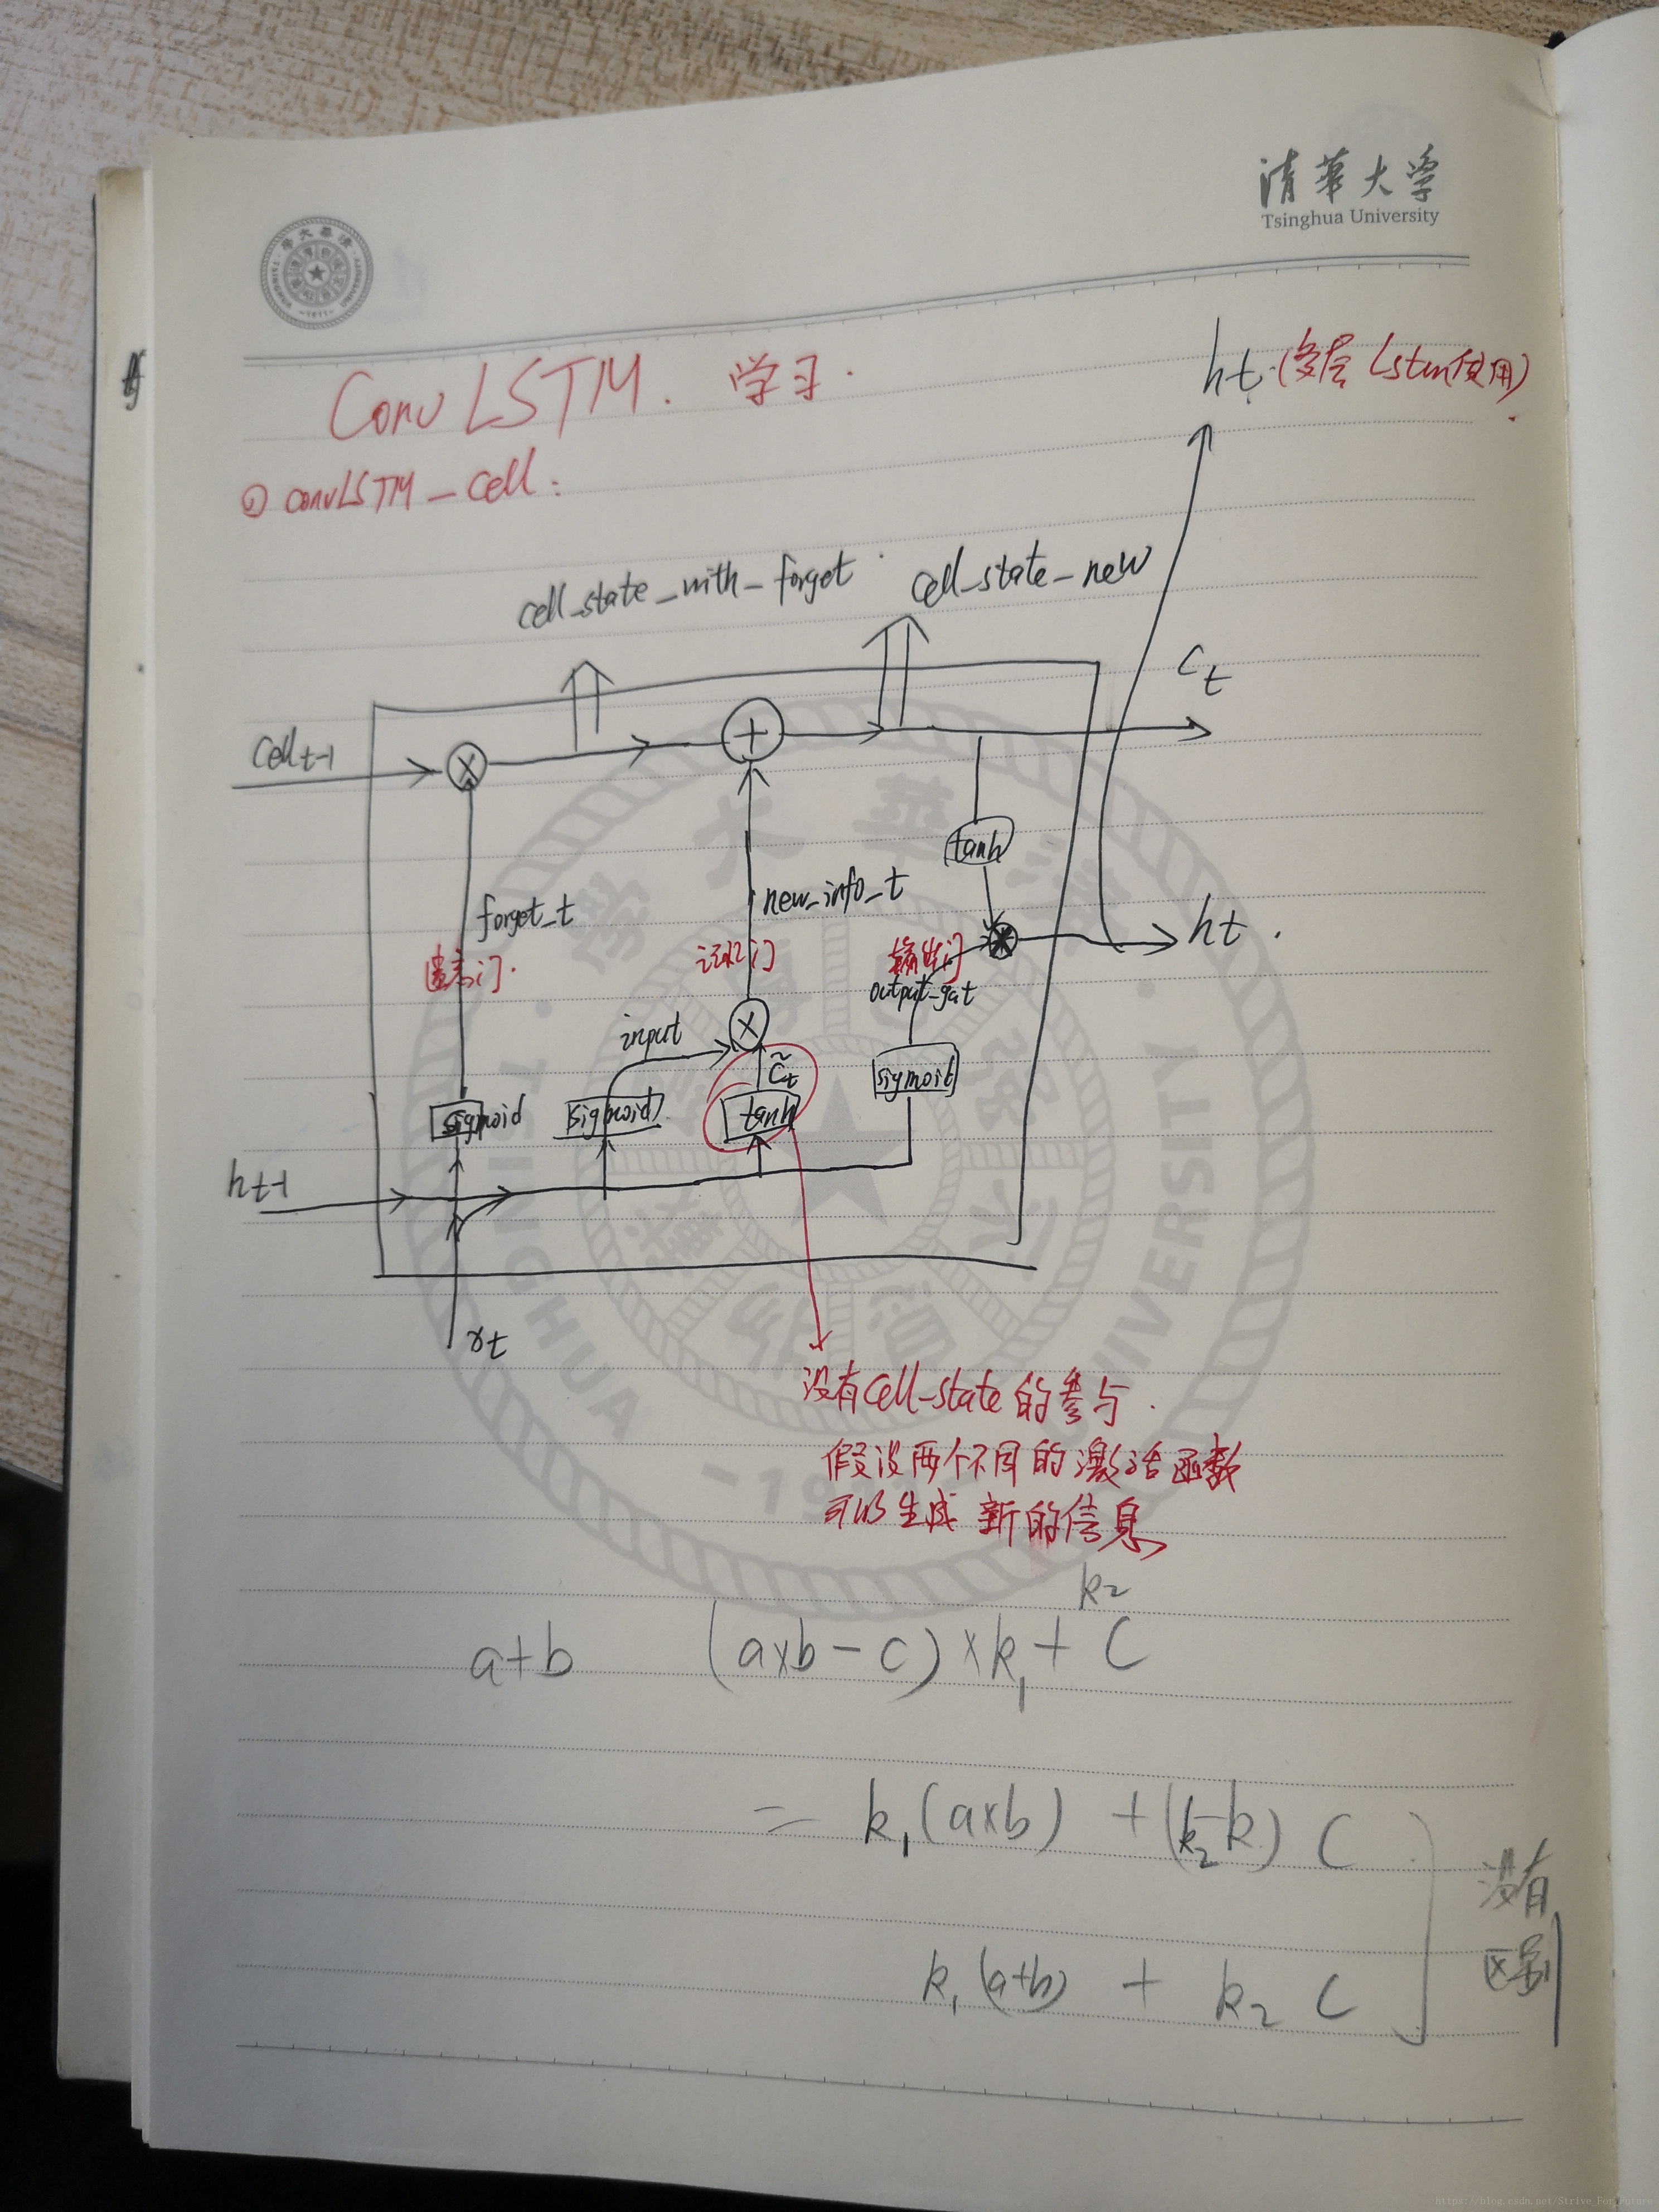 清華大学
Tsinghua University
ConvLSTM. 学习.
① convLSTM_cell:
ht (多层 Lstm使用)
cell_state_with_forget
cell_state_new
Ct
Cellt-1
×
+
tanh
forget_t
new_info_t
遗忘门.
记忆门
输出门
output_gat
ht.
input
×
C̃t
sigmoid
sigmoid
tanh
sigmoid
ht-1
xt
没有cell-state的参与.
假设两个不同的激活函数
可以生成新的信息
k2
a+b (a×b-c)×k1+C
= k1(a×b) +(k2-k) C
k1(a+b) + k2 C
没有
区别
TSINGHUA UNIVERSITY
https://blog.csdn.net/Strive_For_Future